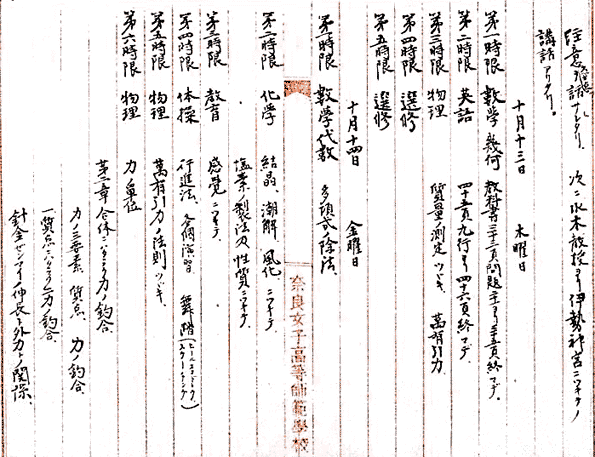 注意ヲ話サレタリ、次ニ水木教授ヨリ伊勢神宮ニツキテノ
講話アリタリ。
十月十三日 木曜日
第一時限 数学 幾何 教科書三十三頁問題二ヨリ三十五頁終マデ。
第二時限 英語 四十五頁九行ヨリ四十六頁終マデ、
第三時限 物理 質量ノ測定ツヅキ、萬有引力
第四時限 選修
第五時限 選修
十月十四日 金曜日
第一時限 数学 代数 多項式ノ除法、
奈良女子高等師範學校
第二時限 化学 結晶、潮解、風化、ニツキテ
塩素ノ製法及性質ニツキテ、
第三時限 教育 感覚ニツキテ、
第四時限 体操 行進法、各個演習、舞踏(
第五時限 物理 萬有引力ノ法則ツヅキ、
第六時限 物理 力ノ単位
第二章 合体ニハタラク力ノ釣合、
力ノ三要素、質点、力ノ釣合、
一質点ニハタラク二力ノ釣合、
針金ゼンマイノ伸長ト外力トノ関係、